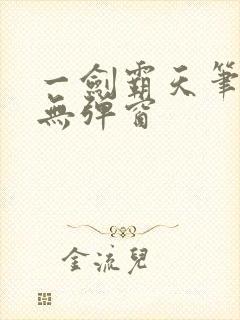 一劍霸天筆
無彈窗
金流兒